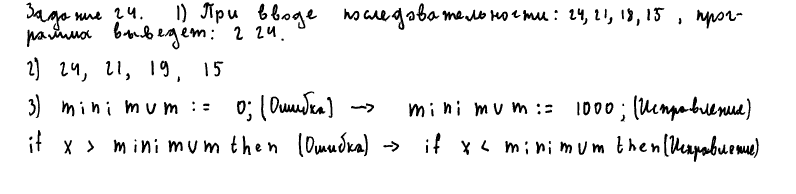 Задание 24. 1) При вводе последовательности: 24, 21, 18, 15, прог-
рамма выведет: 2 24.
2) 24, 21, 19, 15
3) minimum := 0; (Ошибка) → minimum := 1000; (Исправление)
if x > minimum then (Ошибка) → if x < minimum then (Исправление)